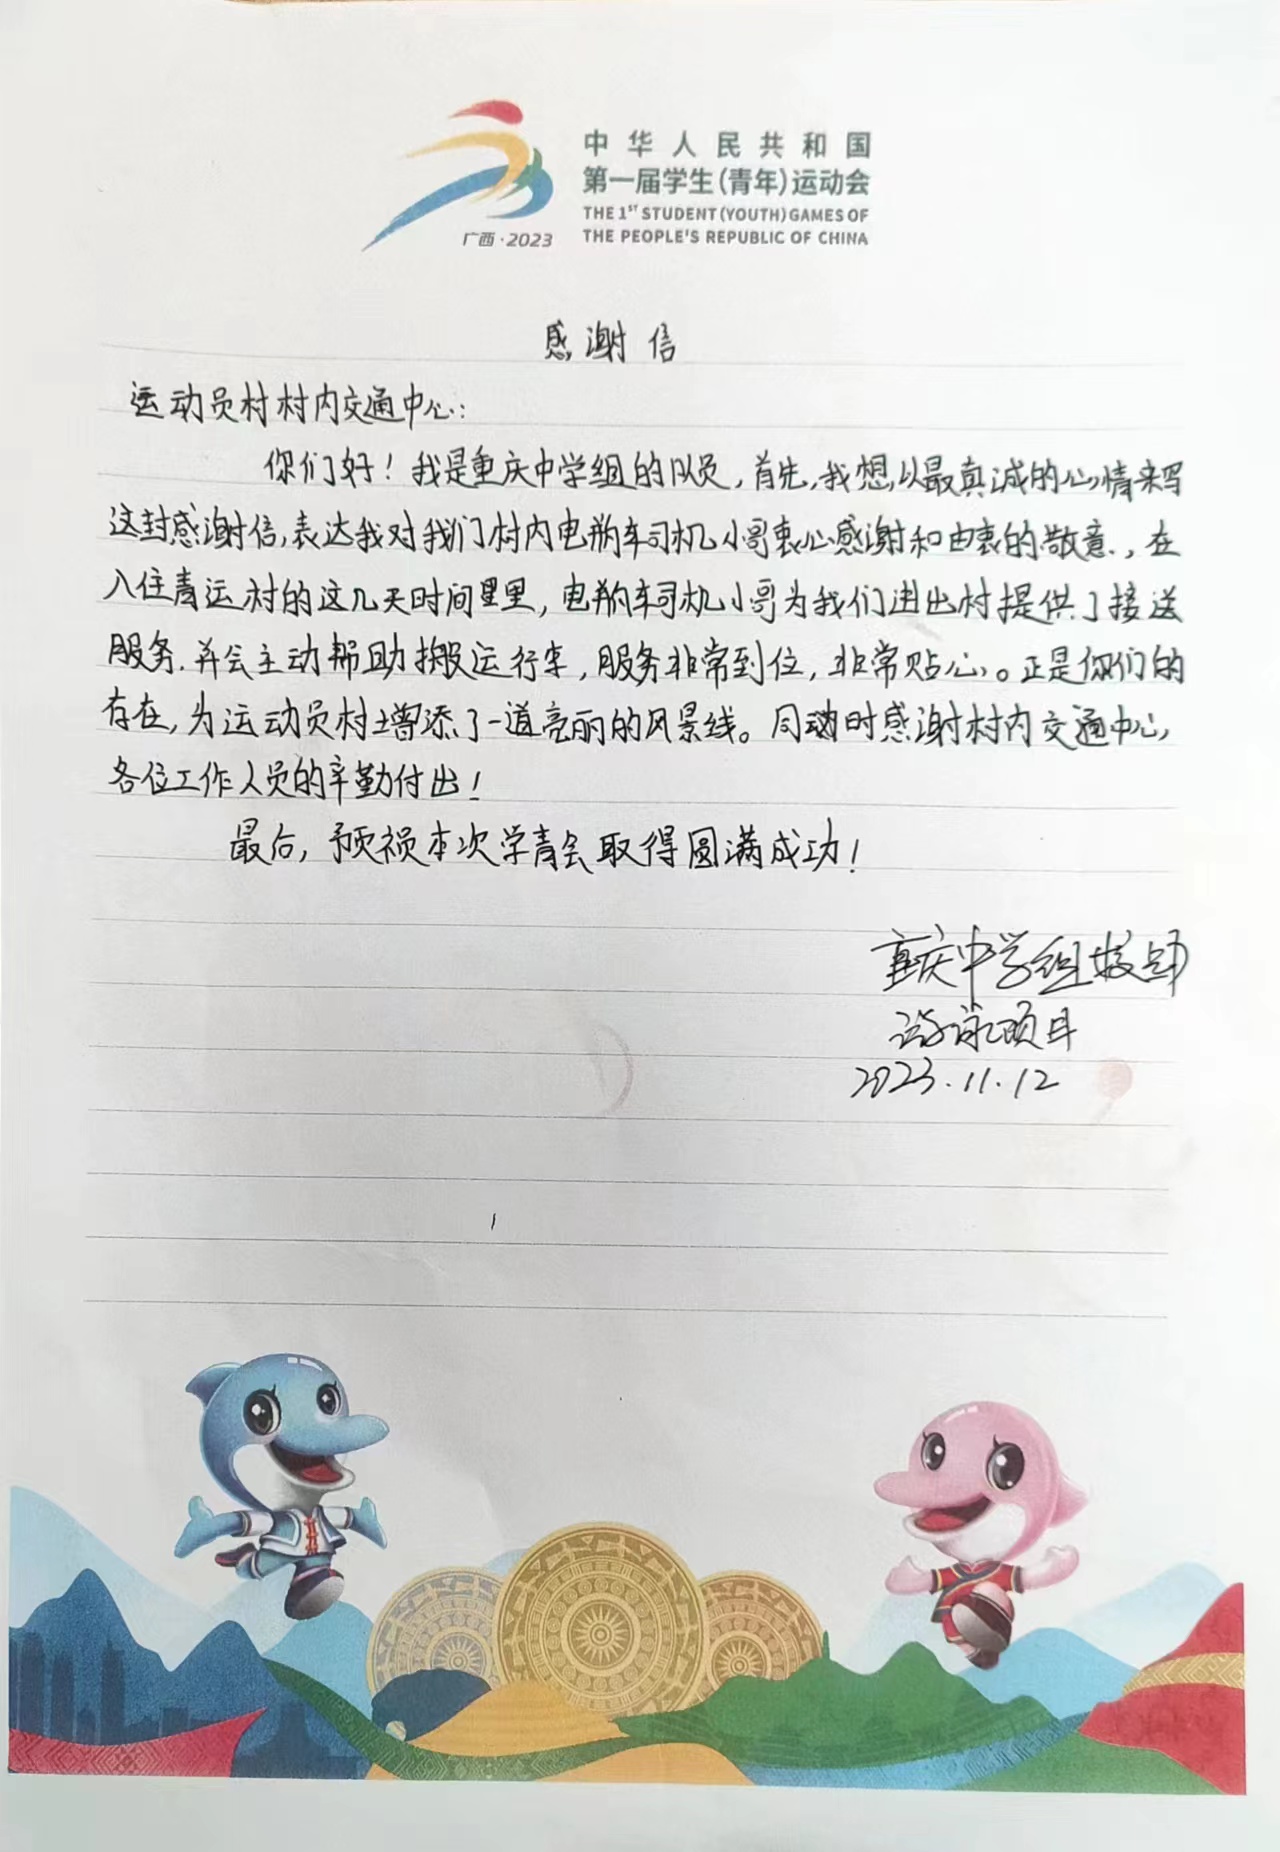 中华人民共和国
第一届学生(青年)运动会
THE 1ST STUDENT (YOUTH) GAMES OF
THE PEOPLE'S REPUBLIC OF CHINA
广西·2023
感谢信
运动员村村内交通中心:
你们好!我是重庆中学组的队员,首先,我想以最真诚的心情来写
这封感谢信,表达我对我们村内电瓶车司机小哥衷心感谢和由衷的敬意.,在
入住青运村的这几天时间里,电瓶车司机小哥为我们进出村提供了接送
服务.并会主动帮助搬运行李,服务非常到位,非常贴心。正是你们的
存在,为运动员村增添了一道亮丽的风景线。同时感谢村内交通中心
各位工作人员的辛勤付出!
最后,预祝本次学青会取得圆满成功!
重庆中学组
游泳项目
2023.11.12